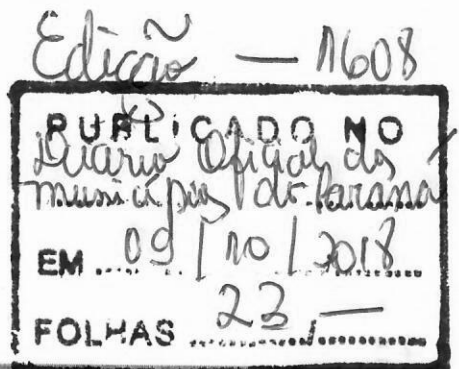 Edição — 1608
PUBLICADO NO
Diário Oficial dos
municípios do Paraná
EM 09/10/2018
FOLHAS 23 —